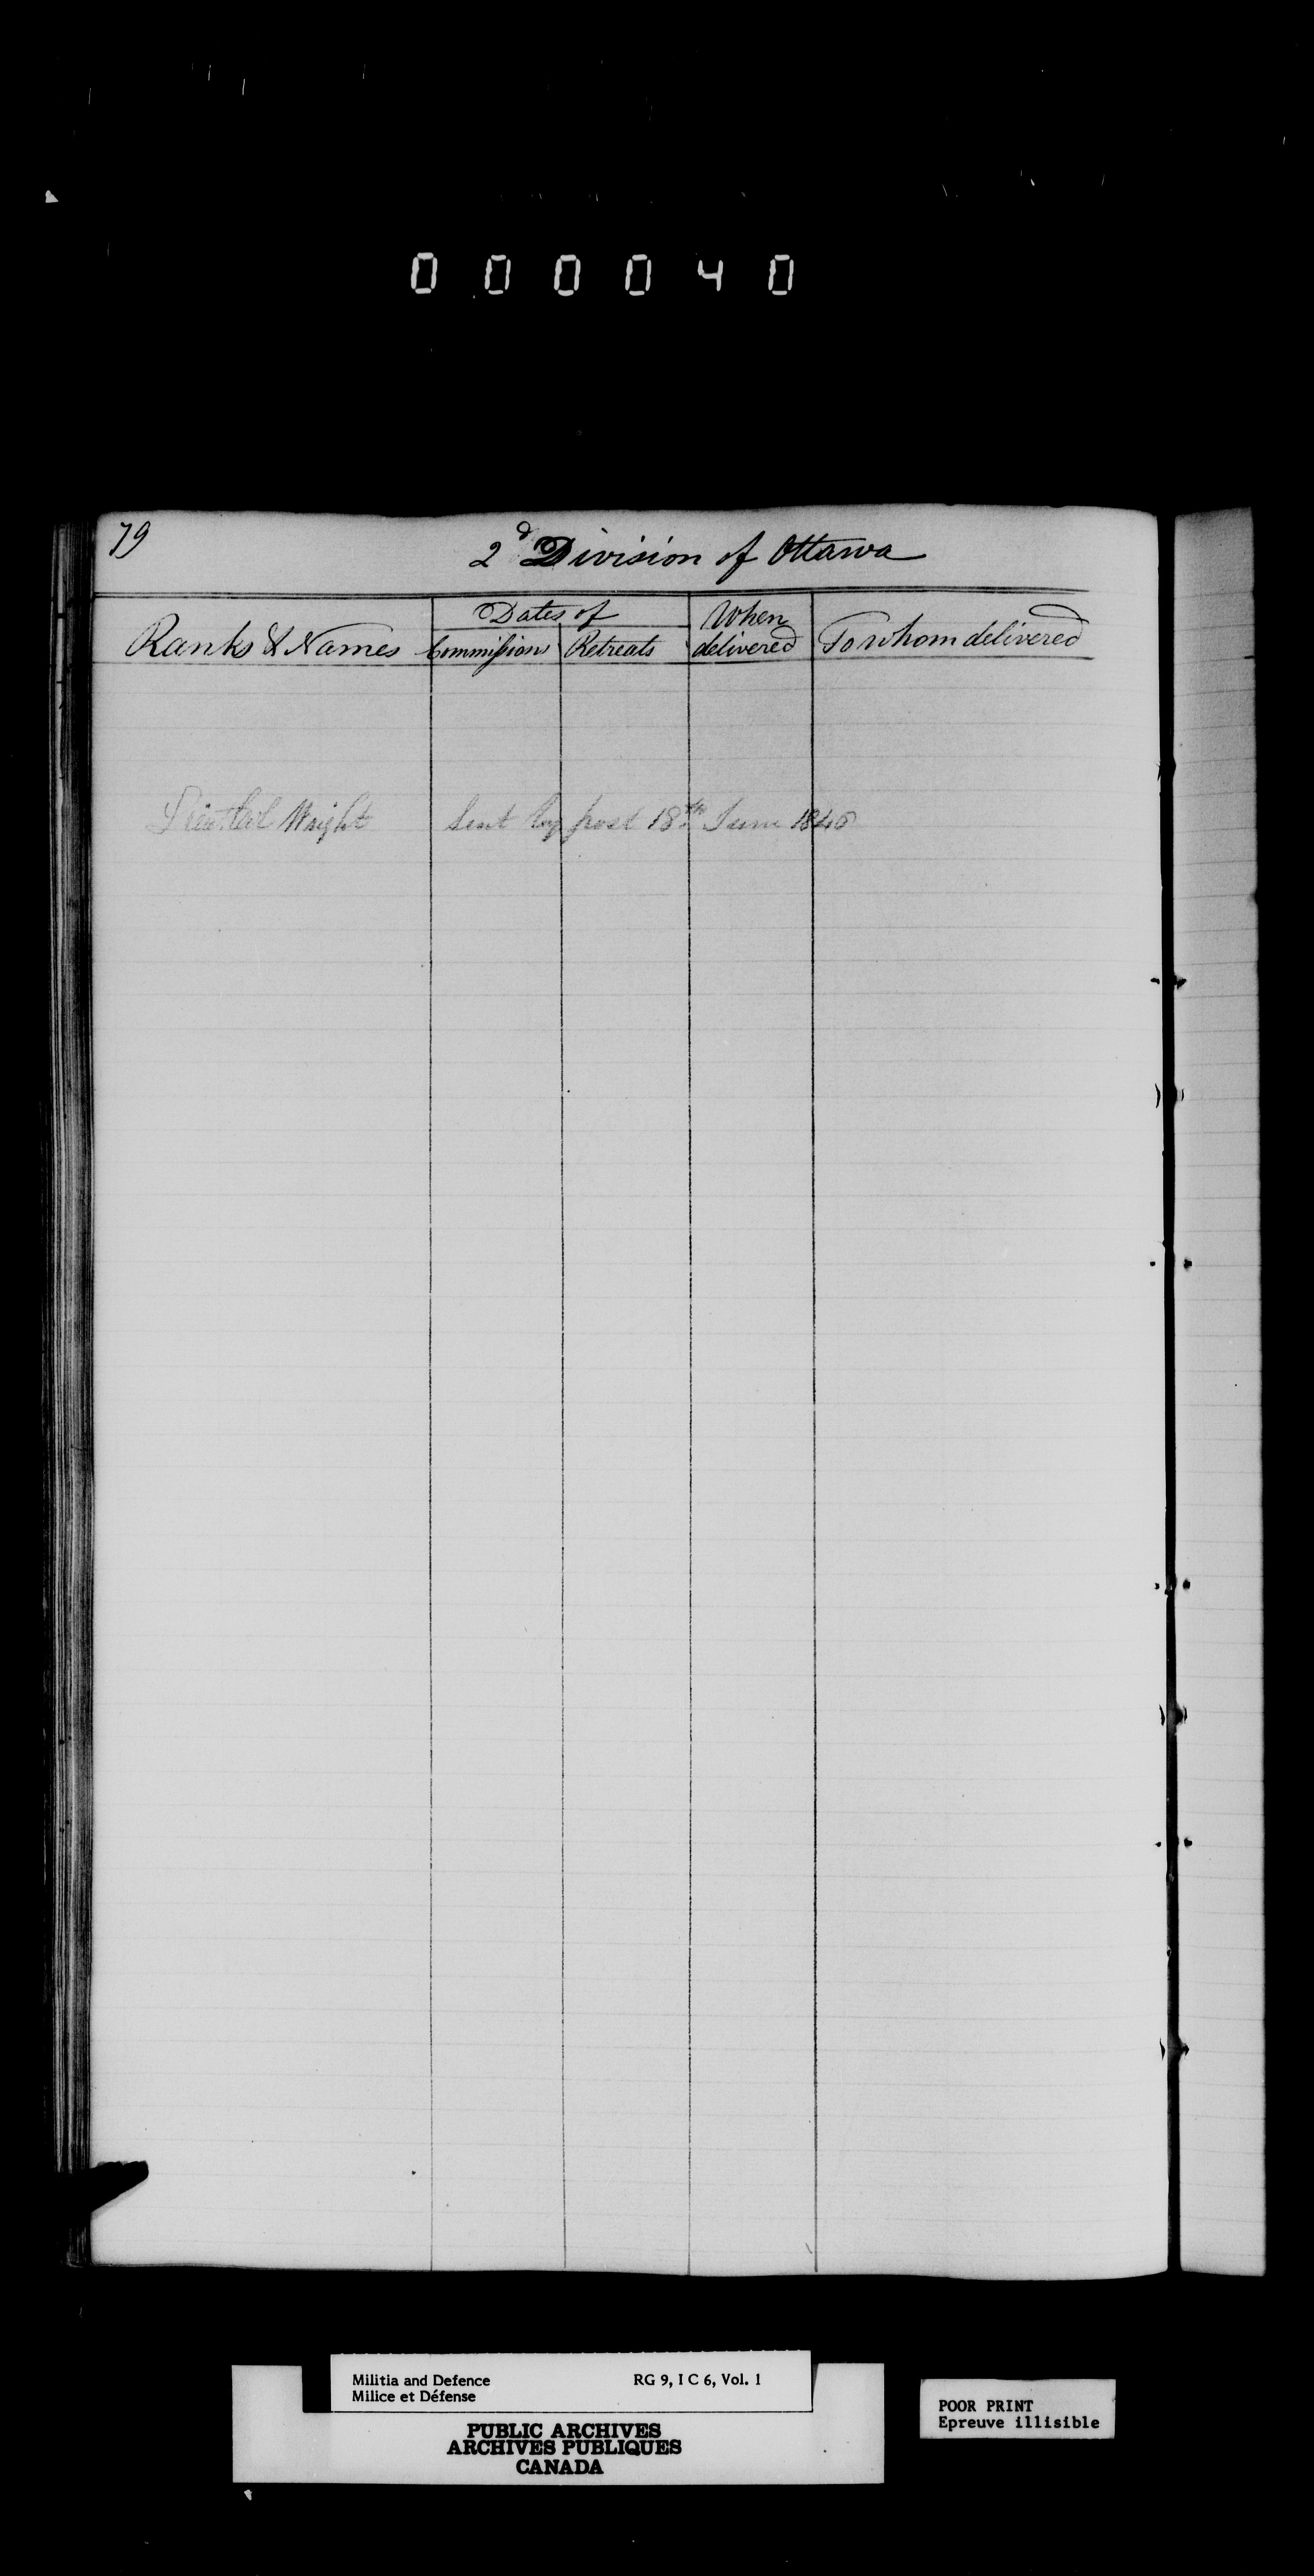 000040
79
2d Division of Ottawa
Ranks & Names
Dates of
Commissions
Retreats
When
delivered
To whom delivered
Lieut. Col Wright Sent by post 18th June 1840
Militia and Defence RG 9, I C 6, Vol. 1
Milice et Défense
PUBLIC ARCHIVES
ARCHIVES PUBLIQUES
CANADA
POOR PRINT
Epreuve illisible